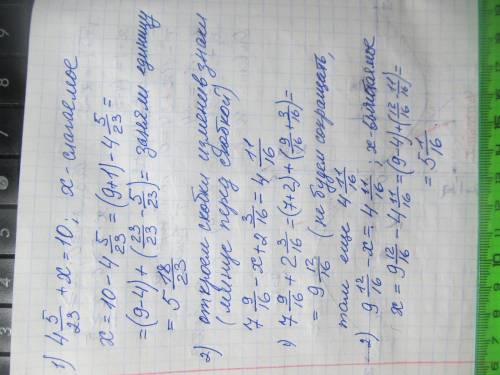 1) 4 5/23 + x = 10; x - слагаемое
x = 10 - 4 5/23 = (9+1) - 4 5/23 =
= (9-4) + (23/23 - 5/23) = заняли единицу
= 5 18/23
2) откроем скобки изменив знаки
(минус перед скобкой)
7 9/16 - x + 2 3/16 = 4 11/16
1) 7 9/16 + 2 3/16 = (7+2) + (9/16 + 3/16) =
= 9 12/16 (не будем сокращать,
там еще 4 11/16
2) 9 12/16 - x = 4 11/16; x вычитаемое
x = 9 12/16 - 4 11/16 = (9-4) + (12/16 11/16) =
= 5 1/16